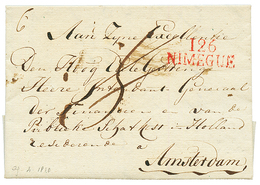 6
Aan Zyne Excellentie
126
NIMEGUE
Den Hoog Edelgestrengen
Heere Intendant Generaal
der Financien en van de
Publieke Schatkist in Holland
residerende a
Amsterdam